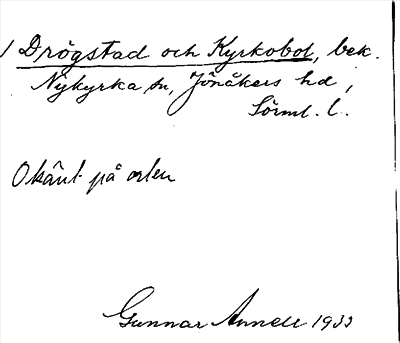 1 Drögstad och Kyrkobol, bek.
Nykyrka sn, Jönåkers hd,
Sörml. l.
Okänt på orten
Gunnar Annell 1933